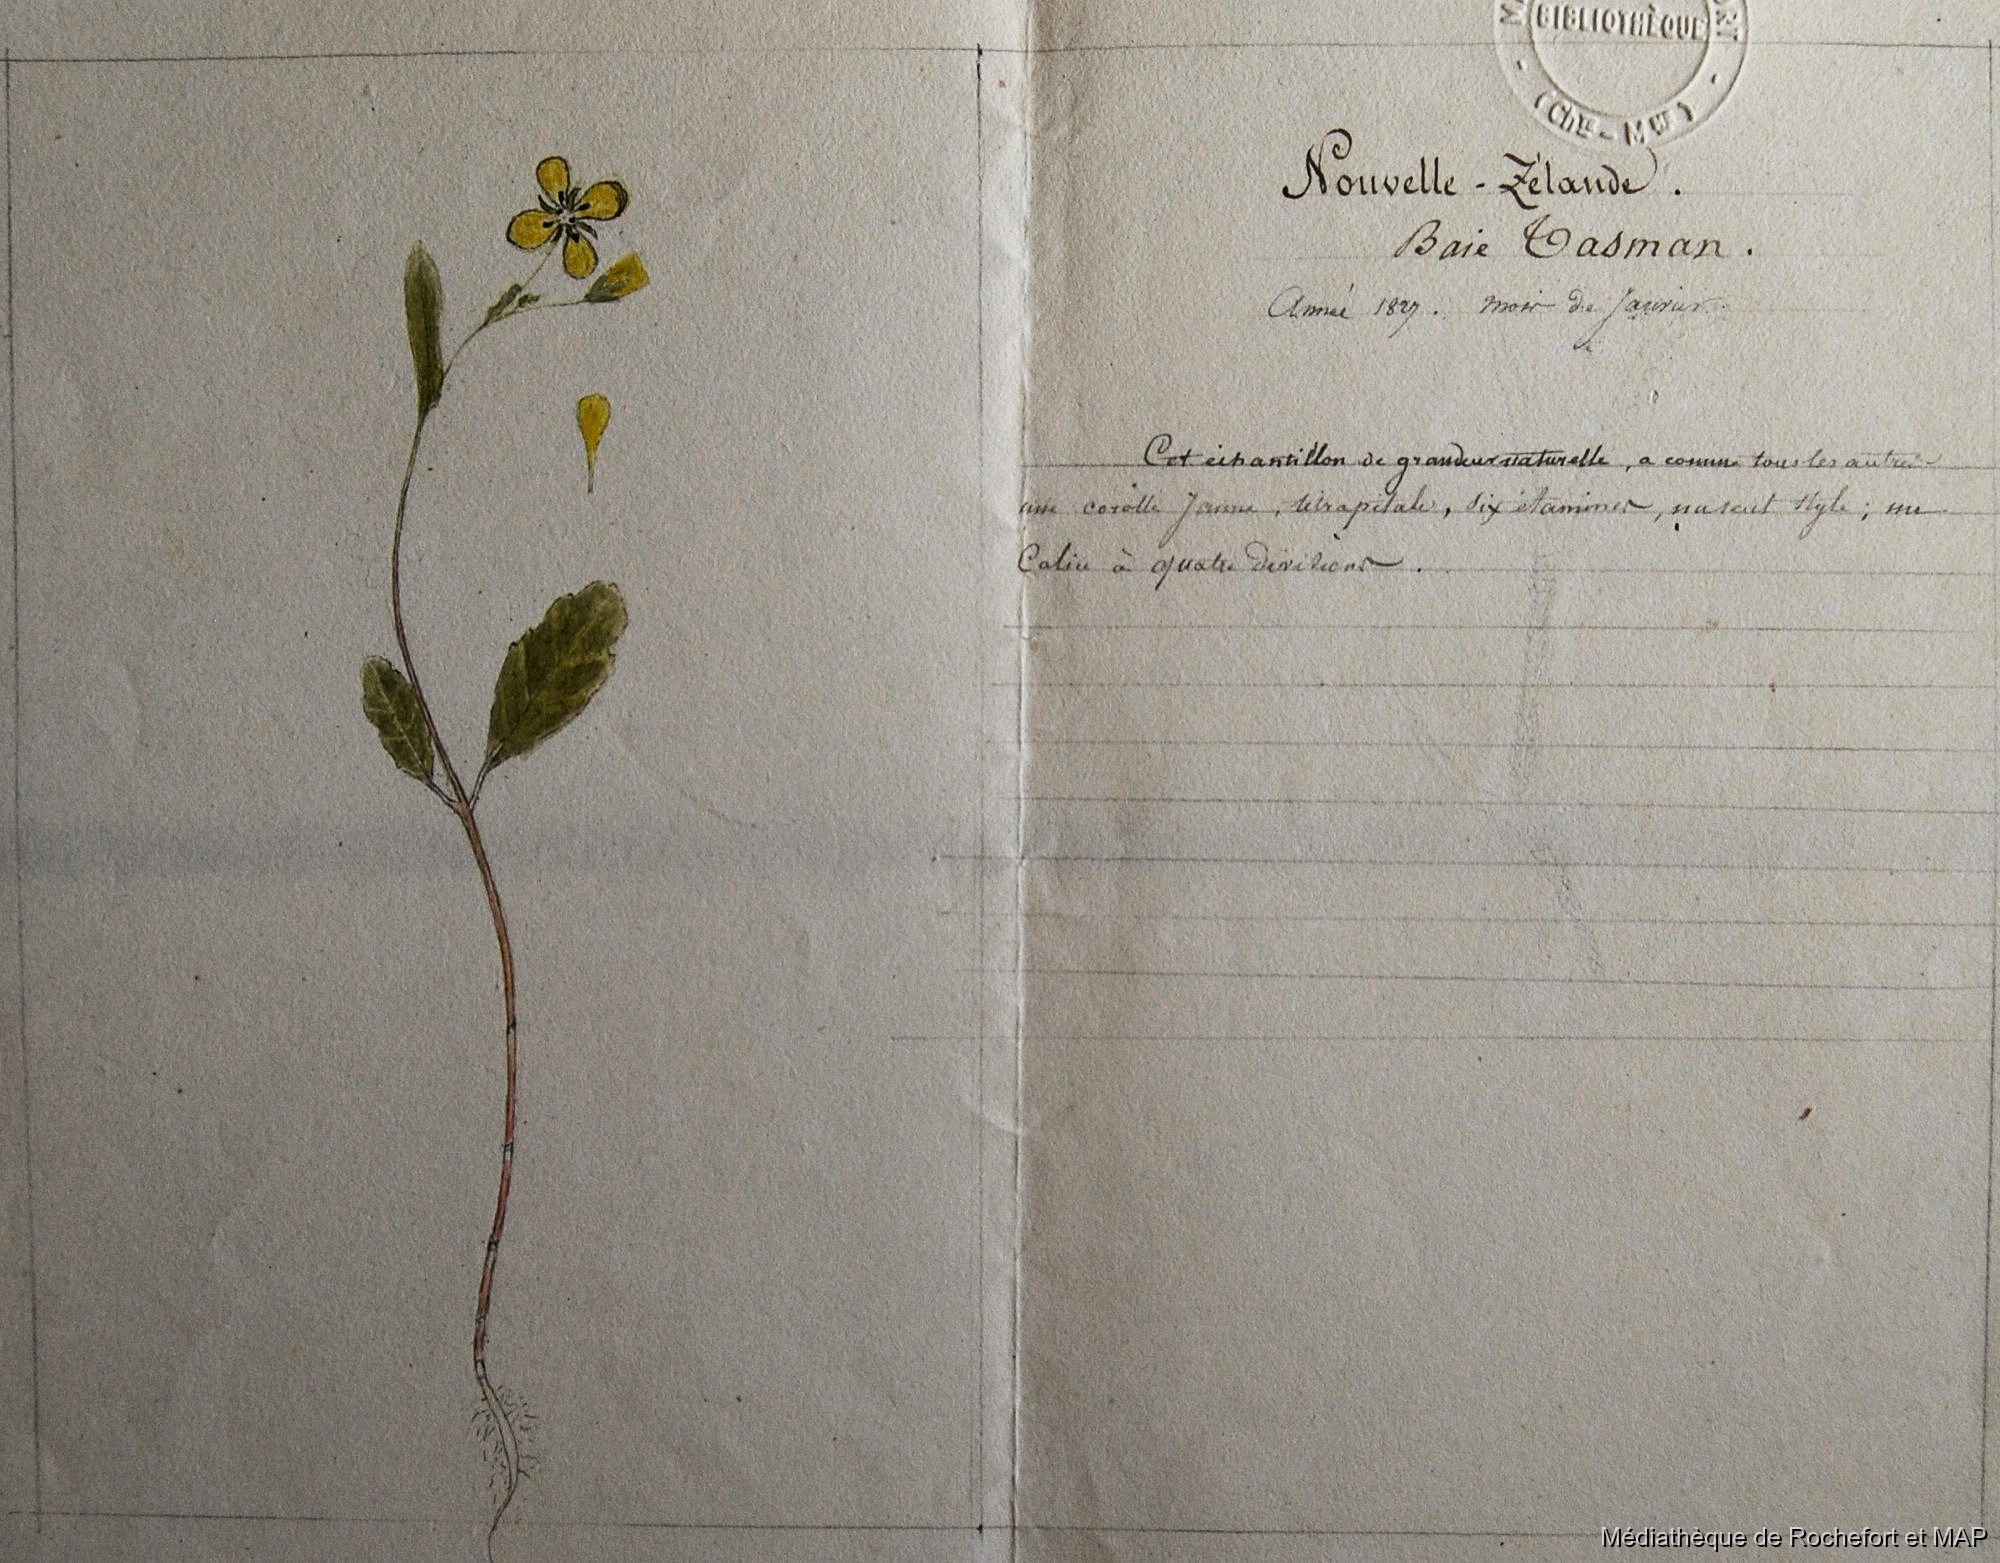 BIBLIOTHÈQUE
(Chte - Mme)
Nouvelle - Zélande.
Baie Tasman.
Année 1827. mois de Janvier
Cet échantillon de grandeur naturelle, a comme tous les autres
une corolle Jaune, tétrapétale, six étamines, un seul style; un
Calice à quatre divisions.
Médiathèque de Rochefort et MAP